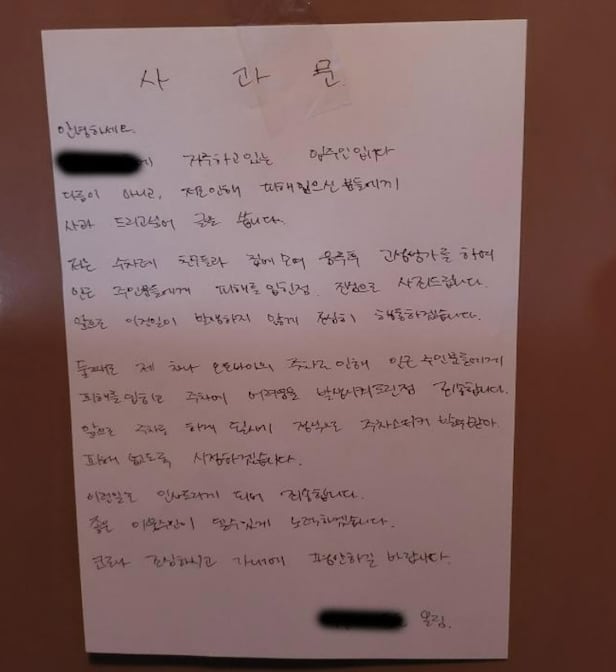 사 과 문.
안녕하세요.
에 거주하고 있는 입주민입니다
다름이 아니고, 저로인해 피해입으신분들에게
사과 드리고싶어 글을 씁니다.
저는 수차례 친구들과 집에 모여 음주후 고성방가를 하여
인근 주민분들에게 피해를 입힌점. 진심으로 사죄드립니다.
앞으로 이런일이 발생하지 않게 조심히 행동하겠습니다.
둘째로 제 차나 오토바이의 주차로 인해 인근 주민분들에게
피해를 입히고 주차에 어려움을 발생시켜드린점 죄송합니다.
앞으로 주차를 하게 될시에 정식으로 주차스티커 발급받아
피해 없도록 시정하겠습니다.
이런일로 인사드리게 되어 죄송합니다.
좋은 이웃주민이 될수있게 노력하겠습니다.
코로나 조심하시고 가내에 평안하길 바랍니다.
올림.